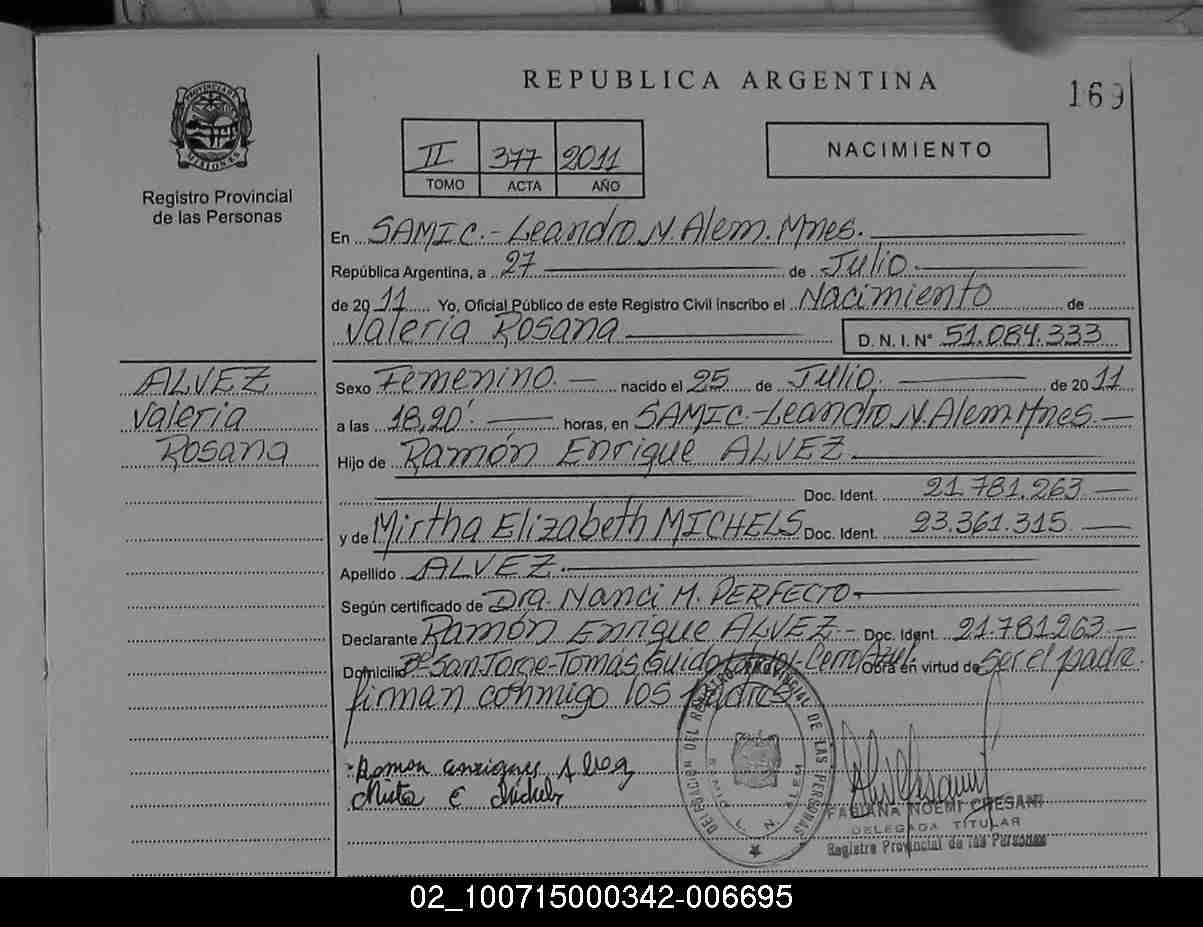 REPUBLICA ARGENTINA
169
PROVINCIA DE MISIONES
Registro Provincial
de las Personas
II 377 2011
TOMO ACTA AÑO
NACIMIENTO
En SAMIC.- Leandro N. Alem. Mnes.
República Argentina, a 27 de Julio.
de 2011 Yo, Oficial Público de este Registro Civil inscribo el Nacimiento de
Valeria Rosana D.N.I.N° 51.084.333
ALVEZ
Valeria
Rosana
Sexo Femenino. nacido el 25 de Julio, de 2011
a las 18,20' horas, en SAMIC.-Leandro N. Alem Mnes
Hijo de Ramón Enrique ALVEZ
Doc. Ident. 21.781.263
y de Mirtha Elizabeth MICHELS Doc. Ident. 23.361.315
Apellido ALVEZ.
Según certificado de Dra. Nanci M. PERFECTO
Declarante Ramón Enrique ALVEZ - Doc. Ident. 21.781263
Domicilio Bº San Jorge-Tomás Guido -Cerro Azul Obra en virtud de ser el padre.
firman conmigo los padres
Ramon enrique Alvez
E Michels
DELEGACION DEL REGISTRO PROVINCIAL DE LAS PERSONAS
L. N. ALEM
FABIANA NOEMI CRESANI
DELEGADA TITULAR
Registro Provincial de las Personas
02_100715000342-006695